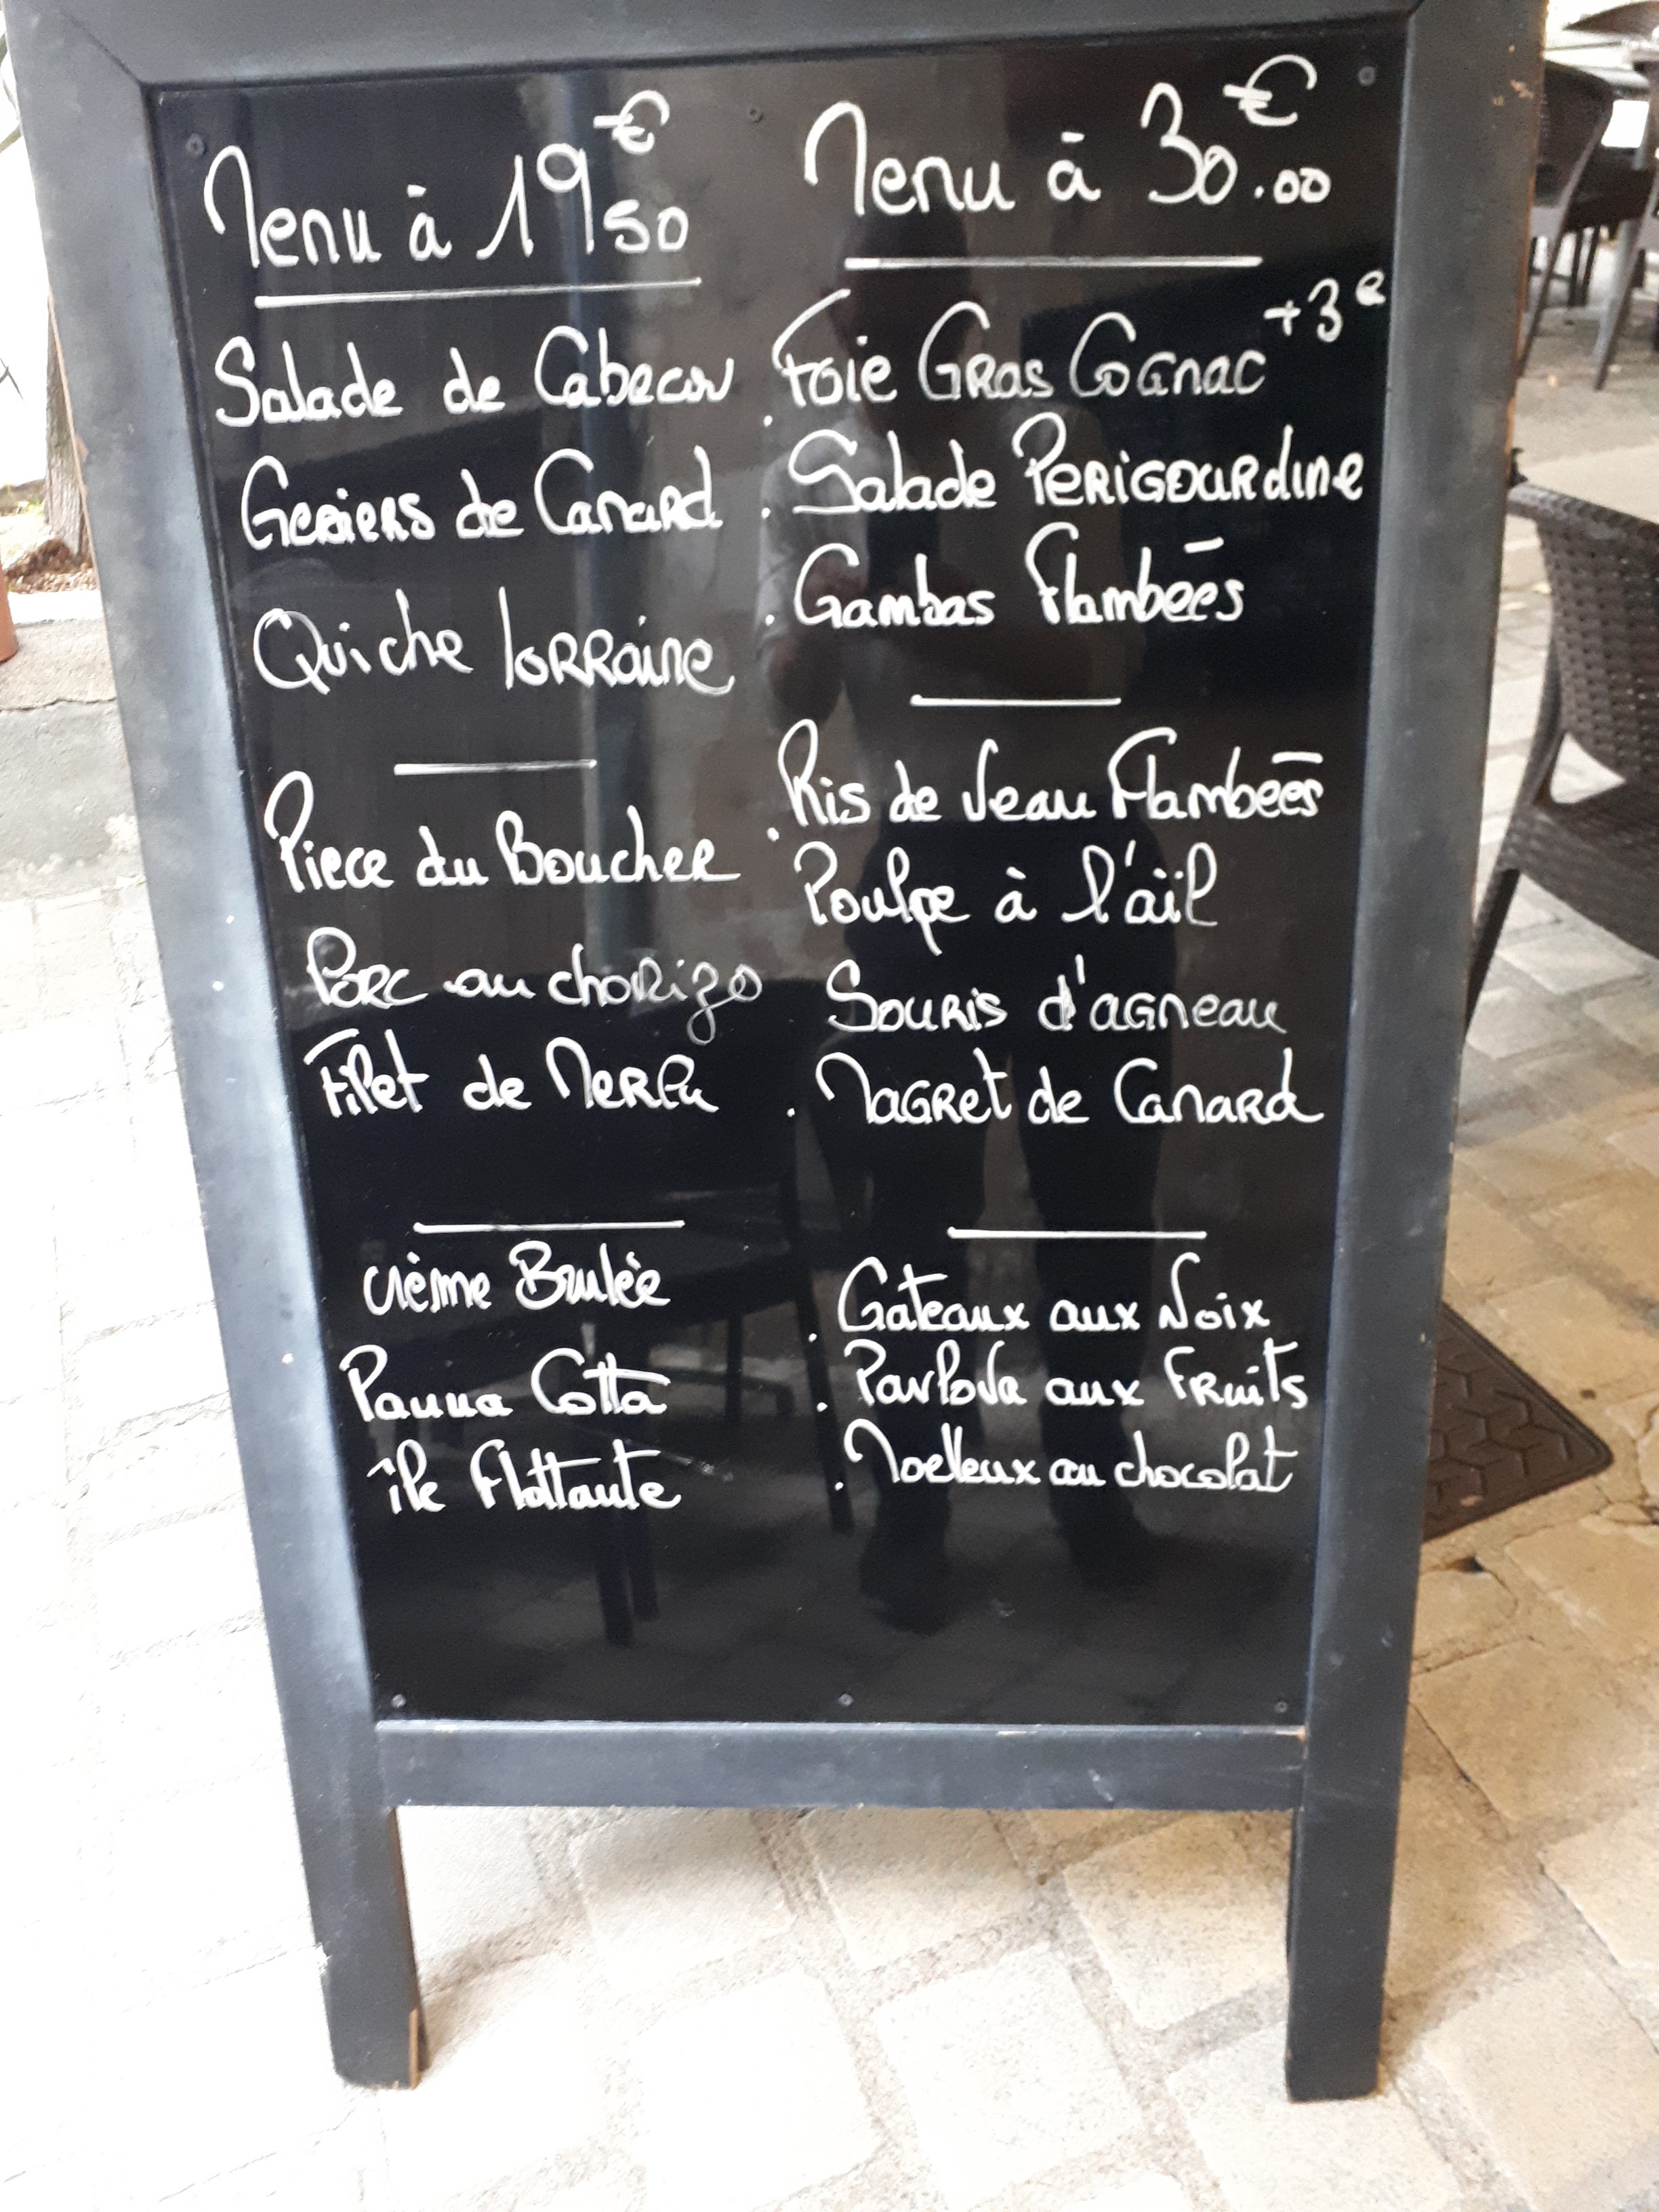 Menu à 19€50
Salade de Cabecou
Gesiers de Canard
Quiche lorraine
Piece du Boucher
Porc au chorizo
Filet de Merlu
Crème Brulée
Panna Cotta
île Flottante
Menu à 30.00€
. Foie Gras Cognac +3e
. Salade Perigourdine
. Gambas Flambées
. Ris de Veau Flambées
Poulpe à l'aïl
Souris d'agneau
. Magret de Canard
. Gateaux aux Noix
. Pavlova aux Fruits
. Moelleux au chocolat